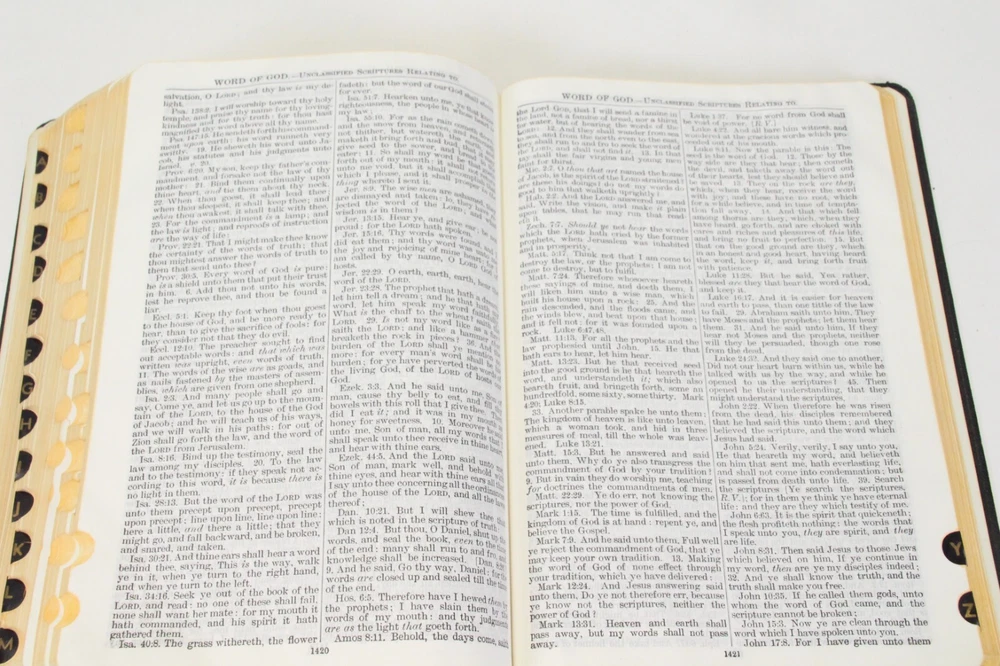 WORD OF GOD.—UNCLASSIFIED SCRIPTURES RELATING TO.
salvation, O LORD; and thy law is my de-
light.
Psa. 138:2. I will worship toward thy holy
temple, and praise thy name for thy loving-
kindness and for thy truth: for thou hast
magnified thy word above all thy name.
Psa. 147:15. He sendeth forth his command-
ment upon earth: his word runneth very
swiftly. 19. He sheweth his word unto Ja-
cob, his statutes and his judgments unto
Israel.
Prov. 6:20. My son, keep thy father's com-
mandment, and forsake not the law of thy
mother: 21. Bind them continually upon
thine heart, and tie them about thy neck.
22. When thou goest, it shall lead thee;
when thou sleepest, it shall keep thee; and
when thou awakest, it shall talk with thee.
23. For the commandment is a lamp; and
the law is light; and reproofs of instruction
are the way of life:
Prov. 22:21. That I might make thee know
the certainty of the words of truth; that
thou mightest answer the words of truth to
them that send unto thee?
Prov. 30:5. Every word of God is pure:
he is a shield unto them that put their trust
in him. 6. Add thou not unto his words,
lest he reprove thee, and thou be found a
liar.
Eccl. 5:1. Keep thy foot when thou goest
to the house of God, and be more ready to
hear, than to give the sacrifice of fools: for
they consider not that they do evil.
Eccl. 12:10. The preacher sought to find
out acceptable words: and that which was
written was upright, even words of truth.
11. The words of the wise are as goads, and
as nails fastened by the masters of assem-
blies, which are given from one shepherd.
Isa. 2:3. And many people shall go and
say, Come ye, and let us go up to the moun-
tain of the LORD, to the house of the God
of Jacob; and he will teach us of his ways,
and we will walk in his paths: for out of
Zion shall go forth the law, and the word of
the LORD from Jerusalem.
Isa. 8:16. Bind up the testimony, seal the
law among my disciples. 20. To the law
and to the testimony: if they speak not ac-
cording to this word, it is because there is
no light in them.
Isa. 28:13. But the word of the LORD was
unto them precept upon precept, precept
upon precept; line upon line, line upon line;
here a little, and there a little; that they
might go, and fall backward, and be broken,
and snared, and taken.
Isa. 30:21. And thine ears shall hear a word
behind thee, saying, This is the way, walk
ye in it, when ye turn to the right hand,
and when ye turn to the left.
Isa. 34:16. Seek ye out of the book of the
LORD, and read: no one of these shall fail,
none shall want her mate: for my mouth it
hath commanded, and his spirit it hath
gathered them.
Isa. 40:8. The grass withereth, the flower
fadeth: but the word of our God shall
for ever.
Isa. 51:7. Hearken unto me, ye
righteousness, the people in
my law
Isa. 55:10. For as the rain cometh down,
and the snow from heaven, and
not thither, but watereth the
maketh it bring forth and bud,
give seed to the sower, and bread
eater: 11. So shall my word be
forth out of my mouth: it shall
unto me void, but it shall
which I please, and it shall prosper
thing whereto I sent it.
Jer. 8:9. The wise men are
are dismayed and taken: lo, they
jected the word of the LORD; and
wisdom is in them?
Jer. 13:15. Hear ye, and give ear; be
proud: for the LORD hath spoken.
Jer. 15:16. Thy words were found, and
did eat them; and thy word was
the joy and rejoicing of mine heart:
am called by thy name, O LORD God
hosts.
Jer. 22:29. O earth, earth, earth, hear
word of the LORD.
Jer. 23:28. The prophet that hath a
let him tell a dream; and he that hath
word, let him speak my word
What is the chaff to the wheat? saith
LORD. 29. Is not my word like as
saith the LORD; and like a hammer
breaketh the rock in pieces? 36. And
burden of the LORD shall ye mention
more: for every man's word shall
burden: for ye have perverted the
the living God, of the LORD of hosts
God.
Ezek. 3:3. And he said unto me, Son
man, cause thy belly to eat, and
bowels with this roll that I give thee.
did I eat it; and it was in my mouth
honey for sweetness. 10. Moreover
unto me, Son of man, all my words
shall speak unto thee receive in thine heart,
and hear with thine ears.
Ezek. 44:5. And the LORD said unto me,
Son of man, mark well, and behold
thine eyes, and hear with thine ears all
I say unto thee concerning all the
of the house of the LORD, and all the
thereof;
Dan. 10:21. But I will shew thee
which is noted in the scripture of truth:
Dan 12:4. But thou, O Daniel, shut up
words, and seal the book, even to the
of the end: many shall run to and fro,
knowledge shall be increased.
9. And he said, Go thy way, Daniel: for the
words are closed up and sealed till the
of the end.
Hos. 6:5. Therefore have I hewed them by
the prophets; I have slain them by
words of my mouth: and thy judgments
are as the light that goeth forth.
Amos 8:11. Behold, the days come, saith
1420
WORD OF GOD.—UNCLASSIFIED SCRIPTURES RELATING TO.
the Lord GOD, that I will send a famine in
the land, not a famine of bread, nor a thirst
for water, but of hearing the words of the
LORD: 12. And they shall wander from sea
to sea, and from the north even to the east,
they shall run to and fro to seek the word of
the LORD, and shall not find it. 13. In that
day shall the fair virgins and young men
faint for thirst.
Mic. 2:7. O thou that art named the house
of Jacob, is the spirit of the LORD straitened?
are these his doings? do not my words do
good to him that walketh uprightly?
Hab. 2:2. And the LORD answered me, and
said, Write the vision, and make it plain
upon tables, that he may run that read-
eth it.
Zech. 7:7. Should ye not hear the words
which the LORD hath cried by the former
prophets, when Jerusalem was inhabited
and in prosperity,
Matt. 5:17. Think not that I am come to
destroy the law, or the prophets: I am not
come to destroy, but to fulfil.
Matt. 7:24. Therefore whosoever heareth
these sayings of mine, and doeth them, I
will liken him unto a wise man, which
built his house upon a rock: 25. And the
rain descended, and the floods came, and
the winds blew, and beat upon that house;
and it fell not: for it was founded upon a
rock. Luke 6:47,48.
Matt. 11:13. For all the prophets and the
law prophesied until John. 15. He that
hath ears to hear, let him hear.
Matt. 13:23. But he that received seed
into the good ground is he that heareth the
word, and understandeth it; which also
beareth fruit, and bringeth forth, some an
hundredfold, some sixty, some thirty. Mark
4:20; Luke 8:15.
33. Another parable spake he unto them:
The kingdom of heaven is like unto leaven,
which a woman took, and hid in three
measures of meal, till the whole was leav-
ened. Luke 13:21.
Matt. 15:3. But he answered and said
unto them, Why do ye also transgress the
commandment of God by your tradition?
9. But in vain they do worship me, teaching
for doctrines the commandments of men.
Matt. 22:29. Ye do err, not knowing the
scriptures, nor the power of God.
Mark 1:15. The time is fulfilled, and the
kingdom of God is at hand: repent ye, and
believe the Gospel.
Mark 7:9. And he said unto them, Full well
ye reject the commandment of God, that ye
may keep your own tradition. 13. Making
the word of God of none effect through
your tradition, which ye have delivered:
Mark 12:24. And Jesus answering said
unto them, Do ye not therefore err, because
ye know not the scriptures, neither the
power of God?
Mark 13:31. Heaven and earth shall
pass away, but my words shall not pass
away.
Luke 1:37. For no word from God shall
be void of power. [R. V.]
Luke 4:22. And all bare him witness, and
wondered at the gracious words which pro-
ceeded out of his mouth.
Luke 8:11. Now the parable is this: The
seed is the word of God. 12. Those by the
way side are they that hear; then cometh
the devil, and taketh away the word out
of their hearts, lest they should believe and
be saved. 13. They on the rock are they,
which, when they hear, receive the word
with joy; and these have no root, which
for a while believe, and in time of tempta-
tion fall away. 14. And that which fell
among thorns are they, which, when they
have heard, go forth, and are choked with
cares and riches and pleasures of this life,
and bring no fruit to perfection. 15. But
that on the good ground are they, which
in an honest and good heart, having heard
the word, keep it, and bring forth fruit
with patience.
Luke 11:28. But he said, Yea rather,
blessed are they that hear the word of God,
and keep it.
Luke 16:17. And it is easier for heaven
and earth to pass, than one tittle of the law
to fail. 29. Abraham saith unto him, They
have Moses and the prophets; let them hear
them. 31. And he said unto him, If they
hear not Moses and the prophets, neither
will they be persuaded, though one rose
from the dead.
Luke 24:32. And they said one to another,
Did not our heart burn within us, while he
talked with us by the way, and while he
opened to us the scriptures? 45. Then
opened he their understanding, that they
might understand the scriptures.
John 2:22. When therefore he was risen
from the dead, his disciples remembered
that he had said this unto them; and they
believed the scripture, and the word which
Jesus had said.
John 5:24. Verily, verily, I say unto you,
He that heareth my word, and believeth
on him that sent me, hath everlasting life,
and shall not come into condemnation; but
is passed from death unto life. 39. Search
the scriptures [Ye search the scriptures,
R. V.]; for in them ye think ye have eternal
life: and they are they which testify of me.
John 6:63. It is the spirit that quickeneth;
the flesh profiteth nothing: the words that
I speak unto you, they are spirit, and they
are life.
John 8:31. Then said Jesus to those Jews
which believed on him, If ye continue in
my word, then are ye my disciples indeed;
32. And ye shall know the truth, and the
truth shall make you free.
John 10:35. If he called them gods, unto
whom the word of God came, and the
scripture cannot be broken;
John 15:3. Now ye are clean through the
word which I have spoken unto you.
John 17:8. For I have given unto them
1421
A
B
C
D
E
F
G
H
I
J
K
L
M
Y
Z